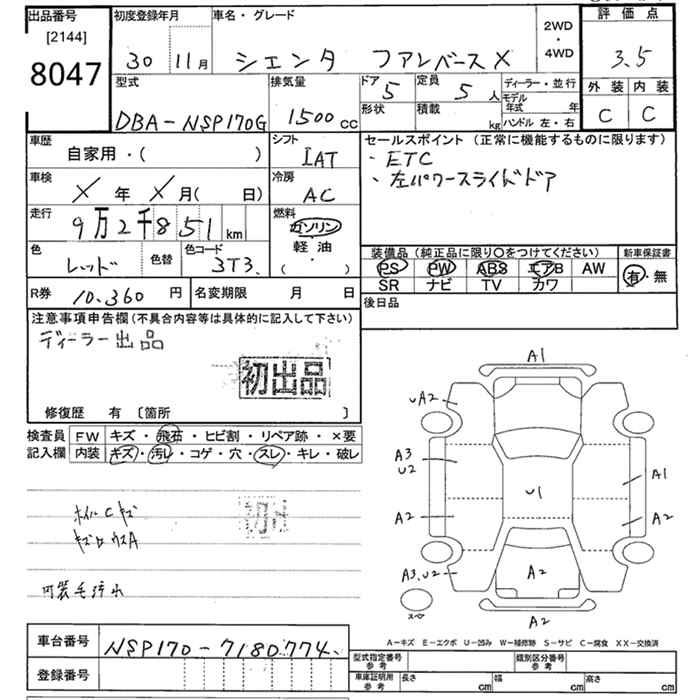 出品番号 初度登録年月 車名・グレード 2WD・4WD 評価点
[2144]
8047 30 11月 シエンタ ファンベースX 3.5
型式 排気量 ドア 定員 ディーラー・並行 外装 内装
DBA-NSP170G 1500cc 5 5人 モデル年式 年 C C
形状 積載 kg ハンドル 左・右
車歴 シフト セールスポイント (正常に機能するものに限ります)
自家用・( ) IAT ・ETC
車検 冷房 ・左パワースライドドア
X年 X月( 日) AC
走行 燃料
9万2千851km ガソリン
軽油
( )
色 色替 色コード 装備品 (純正品に限り〇をつけてください) 新車保証書
レッド 3T3. PS PW ABS エアB AW 有・無
SR ナビ TV カワ
R券 10,360円 名変期限 月 日 後日品
注意事項申告欄 (不具合内容等は具体的に記入して下さい)
ディーラー出品
初出品
修復歴 有 〔箇所 〕
検査員 FW キズ・飛石・ヒビ割・リペア跡・×要
記入欄 内装 キズ・汚レ・コゲ・穴・スレ・キレ・破レ
ホイルCキズ
内装毛汚れ
A1
UA2
A3
U2
A2
A3.U2
U1
A1
A2
A2
A2
スペ
A-キズ E-エクボ U-凹み W-補修跡 S-サビ C-腐食 XX-交換済
車台番号 NSP170-7180774.
登録番号
型式指定番号 参考 類別区分番号 参考
車庫証明用 参考 長さ cm 幅 cm 高さ cm